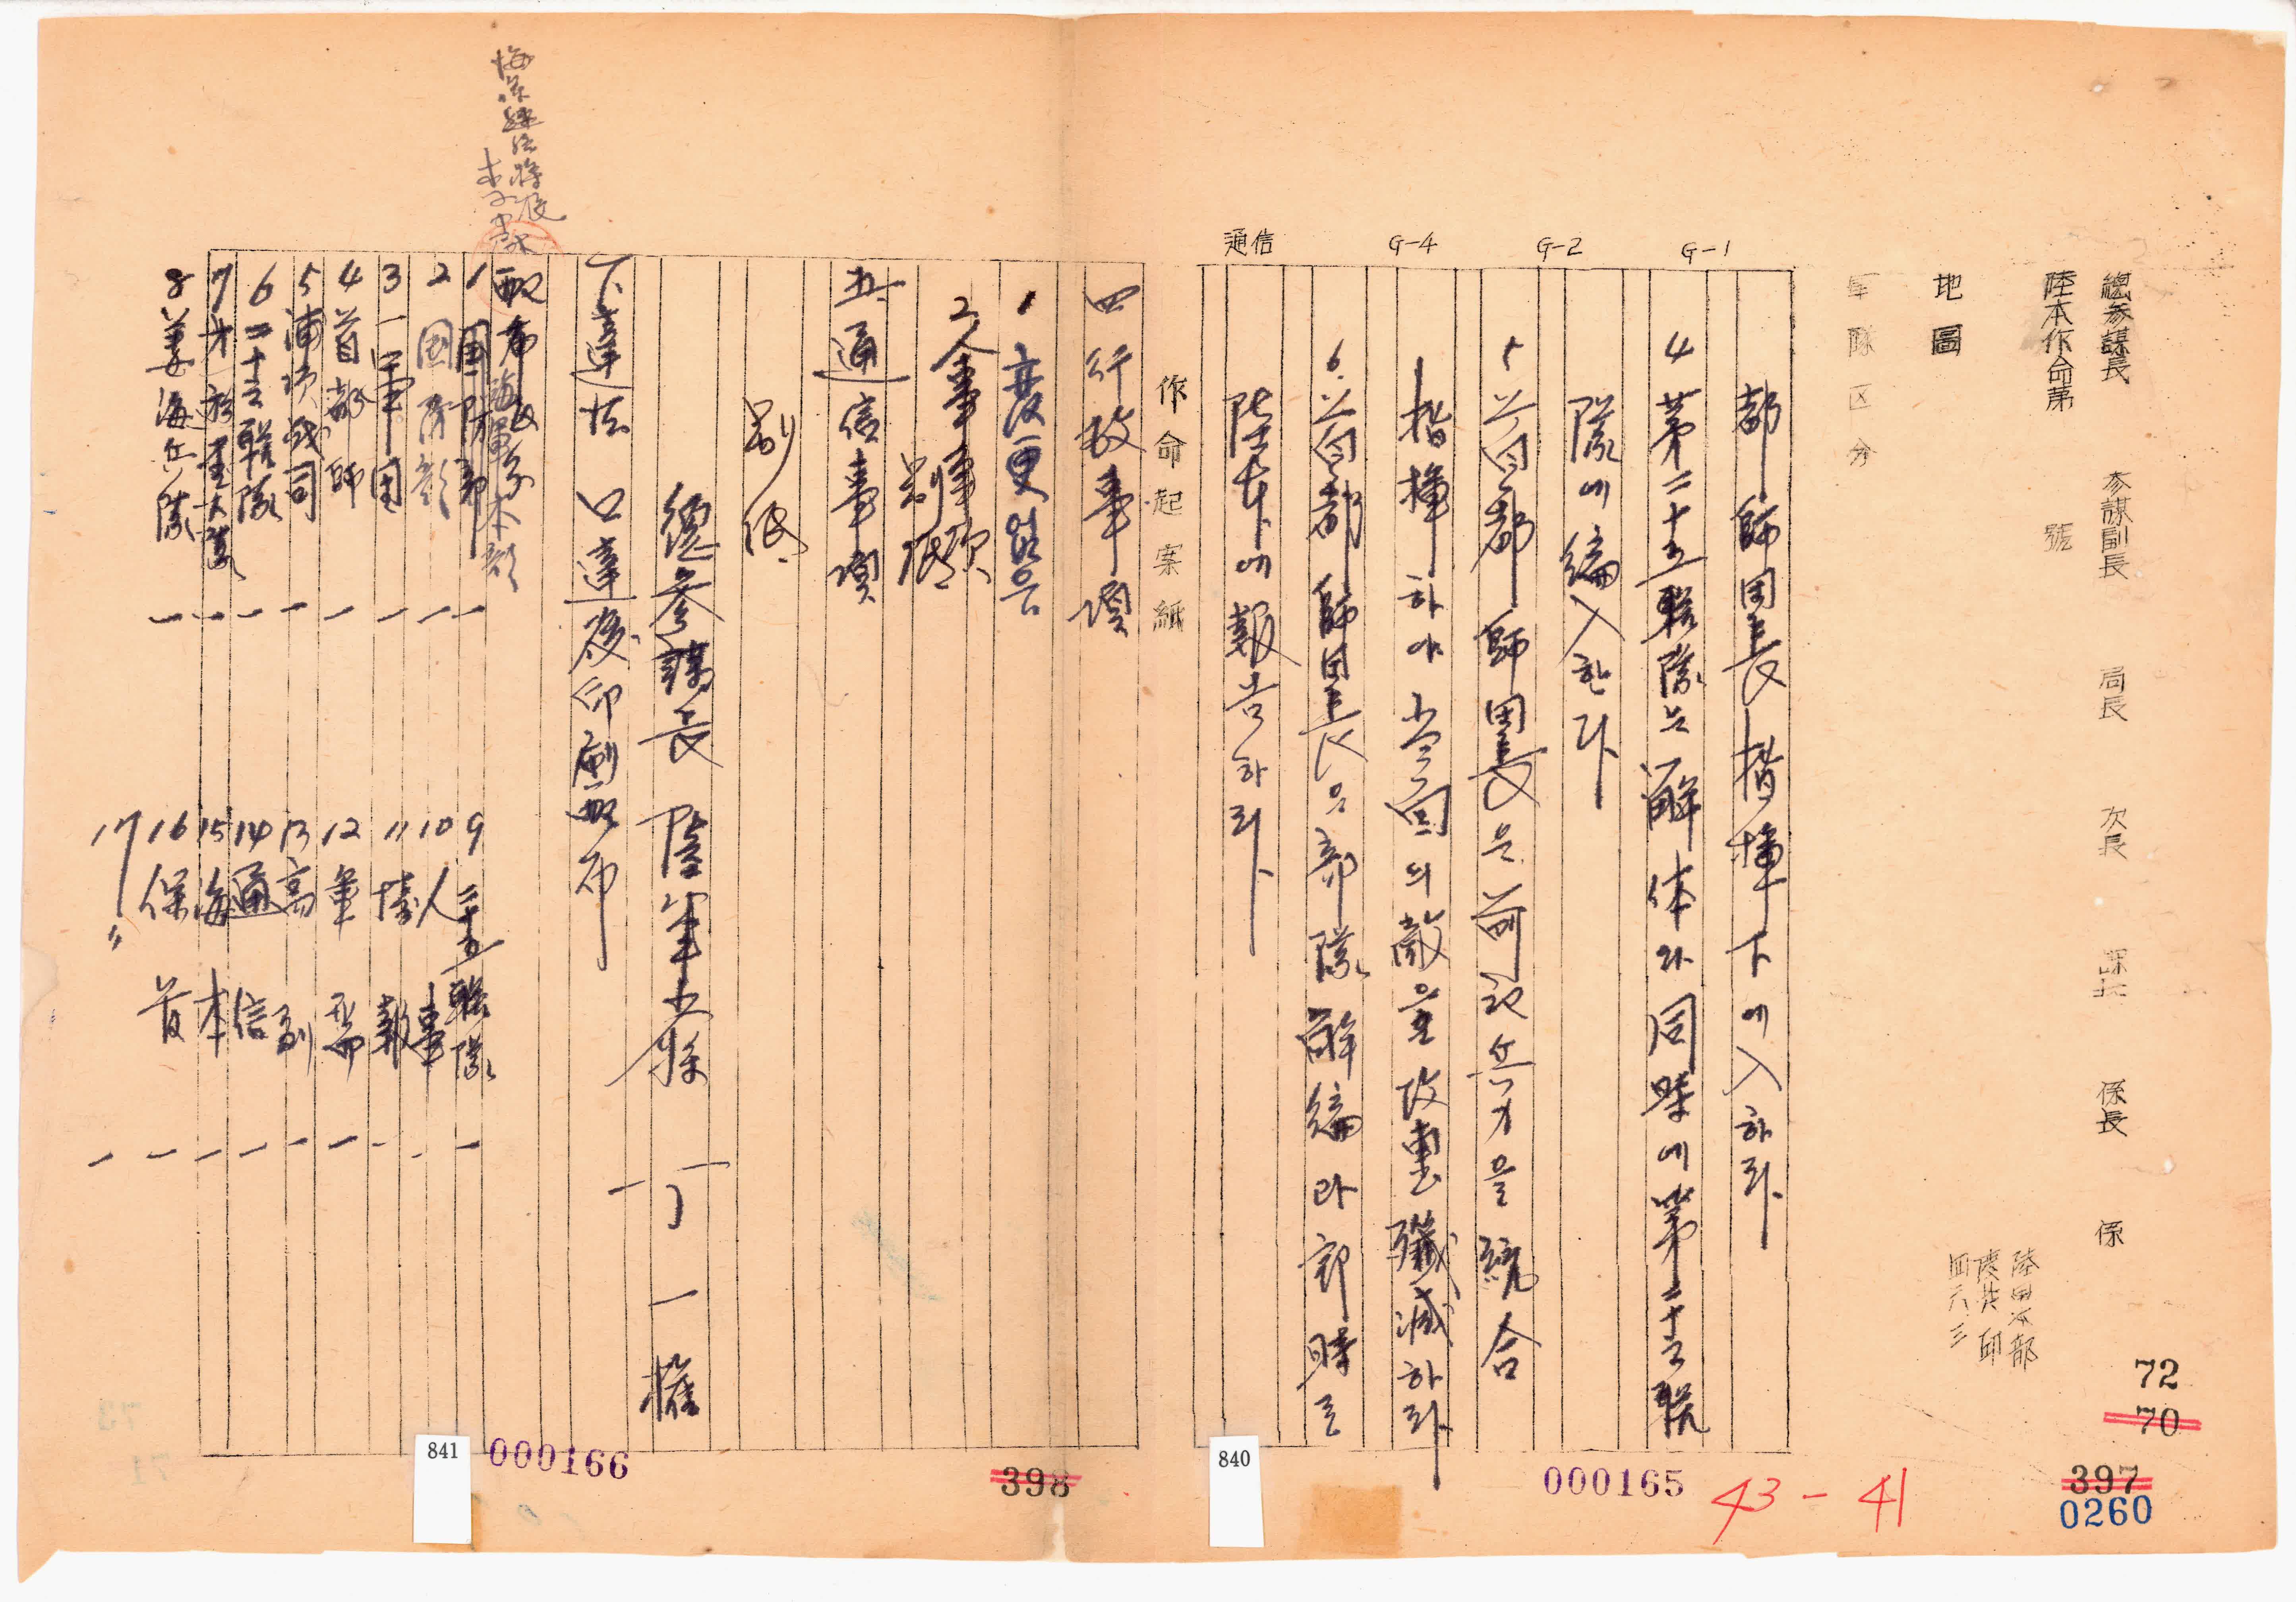 總參謀長 參謀副長 局長 次長 課長 係長 係
陸本作命第 號
地圖
軍隊区分
陸軍本部
G-1
G-2
G-4
通信
都師團長 指揮下에 入하라
4 第二十五聯隊는 解体와 同時에 第二十三聯
隊에 編入한다
5 首都師團長은 前記 兵力을 統合
指揮하야 当面의 敵을 攻擊 殲滅하라
6 首都師團長은 部隊 解編과 卽時로
陸本에 報告하라
作命起案紙
四 行政事項
1 變更없음
2 人事事項
別紙
五 通信事項
別紙
總參謀長 陸軍少將 丁一權
下達法 口達後印刷配布
配布區分
海軍本部
1 國防部 一
2 國防部 一
3 一軍団 一
4 首都師 一
5 浦項战司 一
6 二十三聯隊 一
7 一
8 姜海兵隊 一
9 二十五聯隊 一
10 人事 一
11 情報 一
12 軍需 一
13 高副 一
14 通信 一
15 海本 一
16 保 一
17 〃 一
72
70
397
0260
43-41
000165
840
398
000166
841